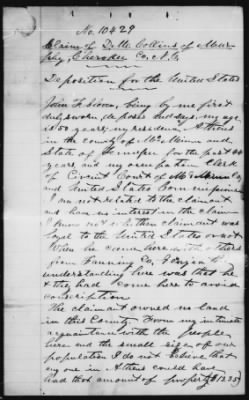 No. 10429
Claim of De Me Collins of Mur-
phy, Cherokee Co., N.C.
Deposition for the United States
John F. being by me first
duly sworn, deposes and says, my age,
is 50 years; my residence, Athens
in the county of McMinn and
State of for the past
years and my occupation Clerk
of Circuit Court of McMinn Co
and United States Commissioner
I am not related to the claimant
and have no interest in the claim
I know not if the claimant was
loyal to the United States or not
When he come here with others
from Fanning Co, Georgia the
understanding here was that he
& they had come here to avoid
conscription
The claimant owned no land
in this County. From my intimate
acquaintance with the people
here and the small size of our
population I do not believe that
any one in Athens could have
had that amount of property ($1235)